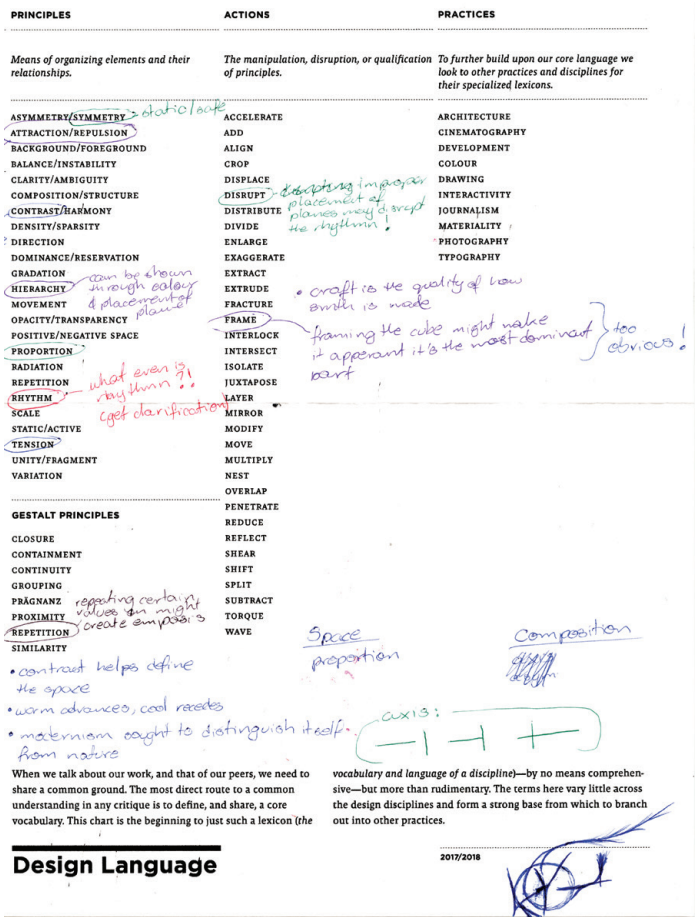 PRINCIPLES
Means of organizing elements and their
relationships.
ASYMMETRY/SYMMETRY static/safe
ATTRACTION/REPULSION
BACKGROUND/FOREGROUND
BALANCE/INSTABILITY
CLARITY/AMBIGUITY
COMPOSITION/STRUCTURE
CONTRAST/HARMONY
DENSITY/SPARSITY
DIRECTION
DOMINANCE/RESERVATION
GRADATION
HIERARCHY
can be shown
through colour
& placement of
plane
MOVEMENT
OPACITY/TRANSPARENCY
POSITIVE/NEGATIVE SPACE
PROPORTION
RADIATION
REPETITION
RHYTHM
what even is
rhythmn?!
(get clarification)
SCALE
STATIC/ACTIVE
TENSION
UNITY/FRAGMENT
VARIATION
GESTALT PRINCIPLES
CLOSURE
CONTAINMENT
CONTINUITY
GROUPING
PRÄGNANZ
PROXIMITY
REPETITION
repeating certain
values might
create emposis
SIMILARITY
• contrast helps define
the space
• warm advances, cool recedes
• modernism sought to distinguish itself
from nature
ACTIONS
The manipulation, disruption, or qualification
of principles.
ACCELERATE
ADD
ALIGN
CROP
DISPLACE
DISRUPT
improper
placement of
planes may disrupt
the rhythmn!
DISTRIBUTE
DIVIDE
ENLARGE
EXAGGERATE
EXTRACT
EXTRUDE
FRACTURE
FRAME
framing the cube might make
it apperant it's the most dominant
part
too
obvious!
INTERLOCK
INTERSECT
ISOLATE
JUXTAPOSE
LAYER
MIRROR
MODIFY
MOVE
MULTIPLY
NEST
OVERLAP
PENETRATE
REDUCE
REFLECT
SHEAR
SHIFT
SPLIT
SUBTRACT
TORQUE
WAVE
PRACTICES
To further build upon our core language we
look to other practices and disciplines for
their specialized lexicons.
ARCHITECTURE
CINEMATOGRAPHY
DEVELOPMENT
COLOUR
DRAWING
INTERACTIVITY
JOURNALISM
MATERIALITY
PHOTOGRAPHY
TYPOGRAPHY
• craft is the quality of how
smth is made
Space
proportion
Composition
axis:
When we talk about our work, and that of our peers, we need to
share a common ground. The most direct route to a common
understanding in any critique is to define, and share, a core
vocabulary. This chart is the beginning to just such a lexicon (the
vocabulary and language of a discipline)—by no means comprehen-
sive—but more than rudimentary. The terms here vary little across
the design disciplines and form a strong base from which to branch
out into other practices.
Design Language
2017/2018